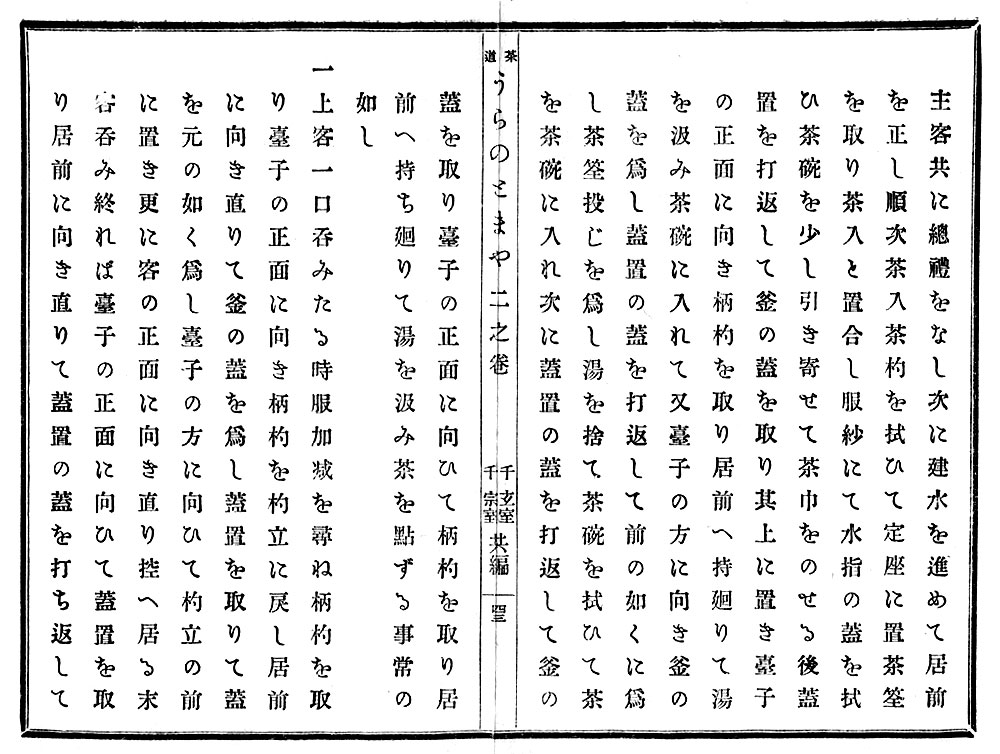 主客共に總禮をなし次に建水を進めて居前
を正し順次茶入茶杓を拭ひて定座に置茶筌
を取り茶入と置合し服紗にて水指の蓋を拭
ひ茶碗を少し引き寄せて茶巾をのせる後蓋
置を打返して釜の蓋を取り其上に置き臺子
の正面に向き柄杓を取り居前へ持廻りて湯
を汲み茶碗に入れて又臺子の方に向き釜の
蓋を爲し蓋置の蓋を打返して前の如くに爲
し茶筌投じを爲し湯を捨て、茶碗を拭ひて茶
を茶碗に入れ次に蓋置の蓋を打返して釜の
茶道うらのとまや二之卷
千玄室
千宗室
共編
四三
蓋を取り臺子の正面に向ひて柄杓を取り居
前へ持ち廻りて湯を汲み茶を點ずる事常の
如し
一上客一口呑みたる時服加减を尋ね柄杓を取
り臺子の正面に向き柄杓を杓立に戻し居前
に向き直りて釜の蓋を爲し蓋置を取りて蓋
を元の如く爲し臺子の方に向ひて杓立の前
に置き更に客の正面に向き直り控へ居る末
客呑み終れば臺子の正面に向ひて蓋置を取
り居前に向き直りて蓋置の蓋を打ち返して